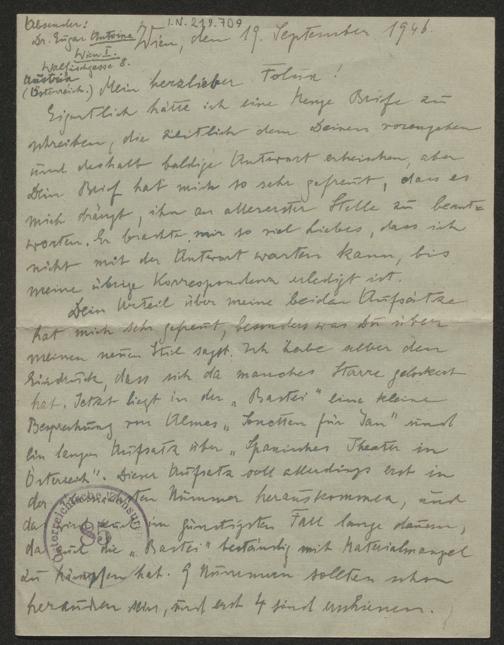 Absender:
I.N. 219.709
Dr. Edgar Antoine
Wien I.
Walfischgasse 8.
Austria
(Österreich.)
Wien, den 19. September 1946.
Mein herzlieber
Eigentlich hätte ich eine Menge Briefe zu
schreiben, die zeitlich dem Deinen vorangehen
und deshalb baldige Antwort erheischen, aber
Dein Brief hat mich so sehr gefreut, dass es
mich drängt, ihn an allererster Stelle zu beant-
worten. Er brachte mir so viel Liebes, dass ich
nicht mit der Antwort warten kann, bis
meine übrige Korrespondenz erledigt ist.
Dein Urteil über meine beiden Aufsätze
hat mich sehr gefreut, besonders was Du über
meinen neuen Stil sagst. Ich habe selber den
Eindruck, dass sich da manches Starre gelockert
hat. Jetzt liegt in der „Bastei" eine kleine
Besprechung von "Sonetten für Jan" und
ein langer Aufsatz über „Spanisches Theater in
Österreich". Dieser Aufsatz soll allerdings erst in
der Nummer herauskommen, und
da wird im günstigsten Fall lange dauern,
da die „Bastei" beständig mit Materialmangel
zu kämpfen hat. 9 Nummern sollten schon
heraußen sein, und erst 4 sind erschienen.
Österreichische Zensur